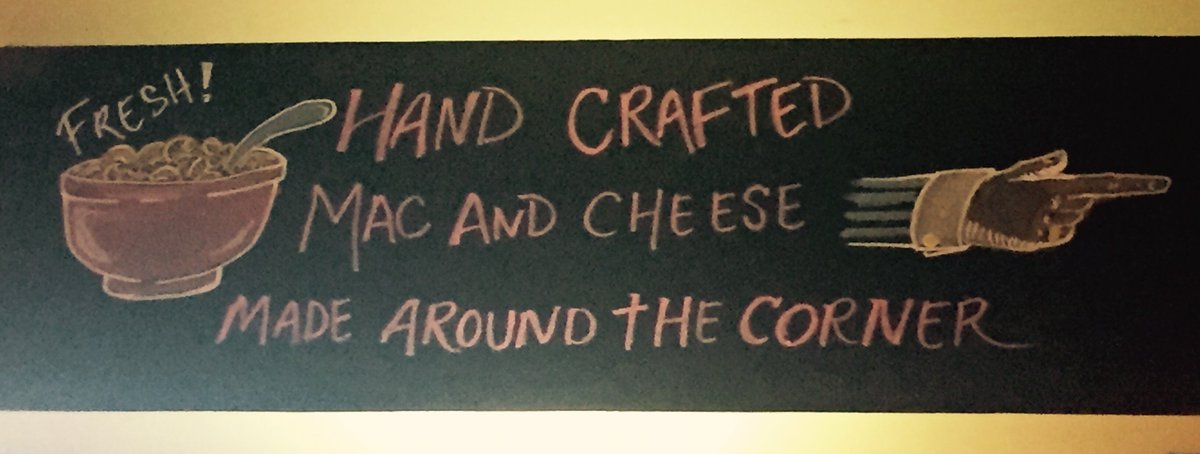 FRESH!
HAND CRAFTED
MAC AND CHEESE
MADE AROUND THE CORNER